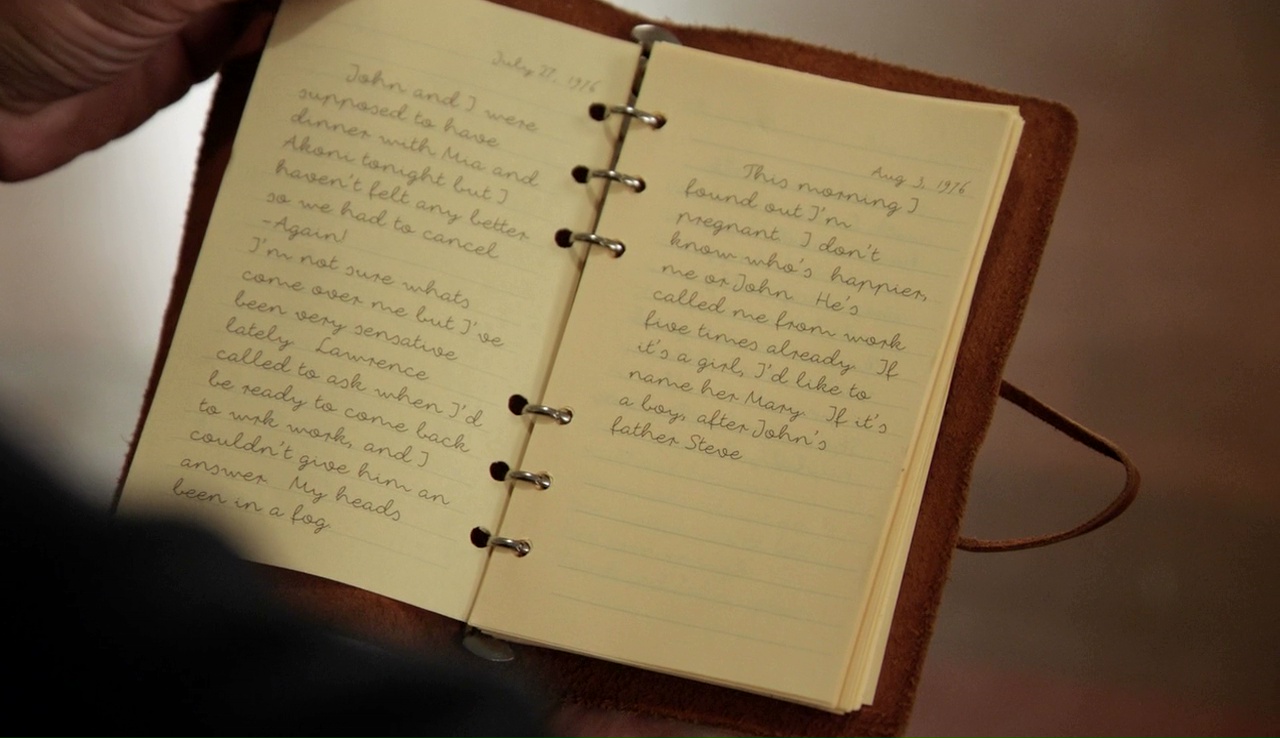 July 27, 1976
John and I were
supposed to have
dinner with Mia and
Akoni tonight but I
haven't felt any better
so we had to cancel
-Again!
I'm not sure whats
come over me but I've
been very sensative
lately. Lawrence
called to ask when I'd
be ready to come back
to wrk work, and I
couldn't give him an
answer. My heads
been in a fog.
Aug 3, 1976
This morning I
found out I'm
pregnant. I don't
know who's happier,
me or John. He's
called me from work
five times already. If
it's a girl, I'd like to
name her Mary. If it's
a boy, after John's
father Steve